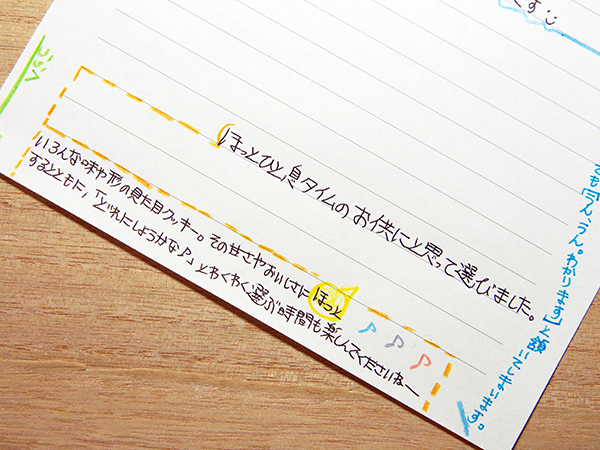 くす
ほっとひと息タイムの お供にと思って選びました。
いろんな味や形の見た目クッキー。その甘さやおいしさにほっと
するとともに、「どれにしようかな♪」とわくわく選ぶ時間も楽しんでくださいねー
でも「うん、うん。わかります」と頷いてしまいます。